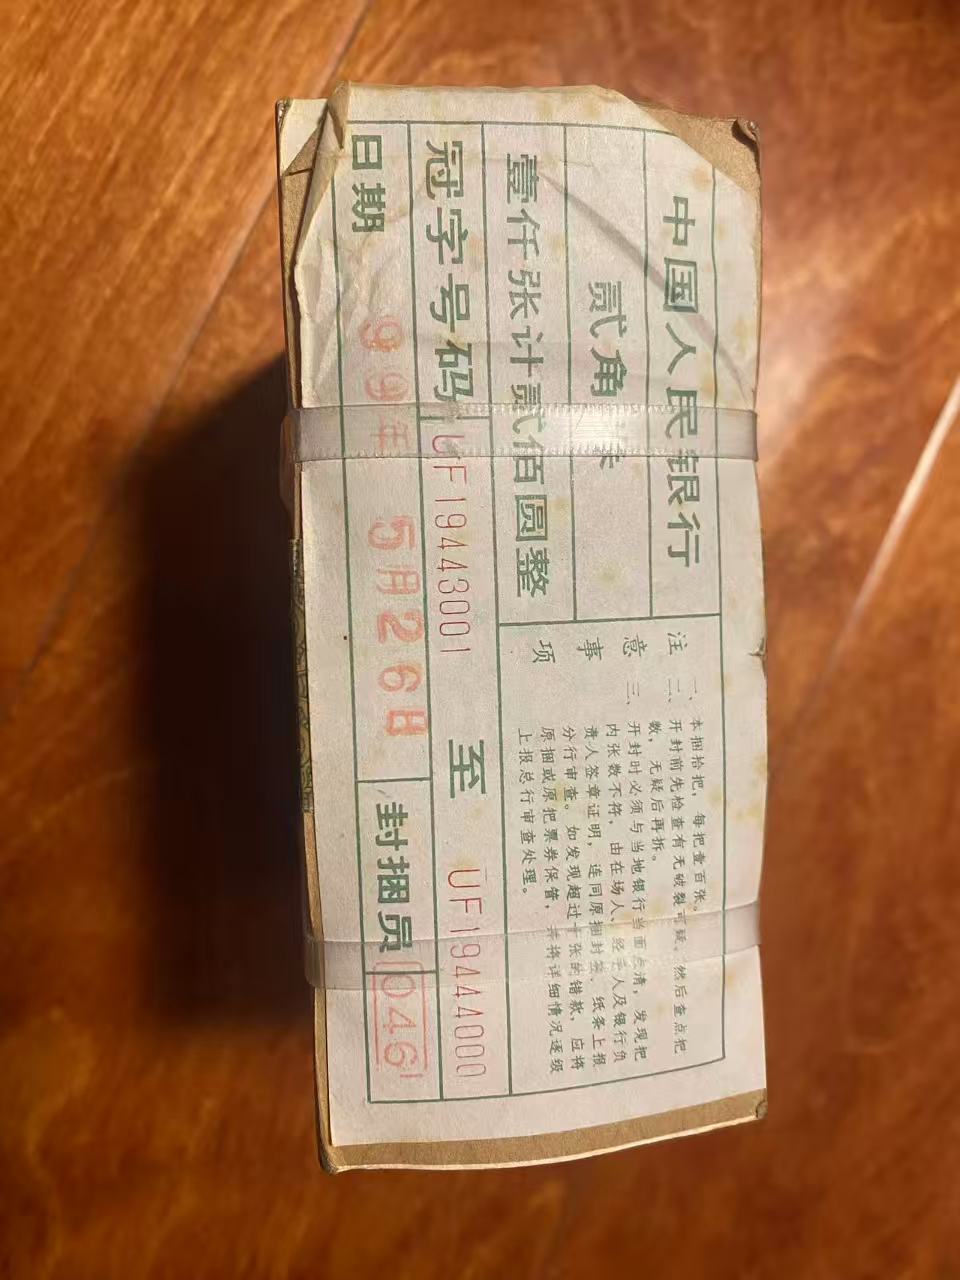 中国人民银行
贰角
壹仟张计贰佰圆整
冠字号码 UF19443001 至 UF19444000
日期 99年 5月26日 封捆员 046
注意事项
一、本捆拾把，每把壹百张。
二、开封前先检查有无破裂可疑。然后查点把
数，无疑后再拆。
三、开封时必须与当地银行当面点清，发现把
内张数不符，由在场人、经手人及银行负
责人签章证明，连同原捆封签、纸条上报
分行审查。如发现超过十张的错款，应将
原捆或原把票券保管，并将详细情况逐级
上报总行审查处理。